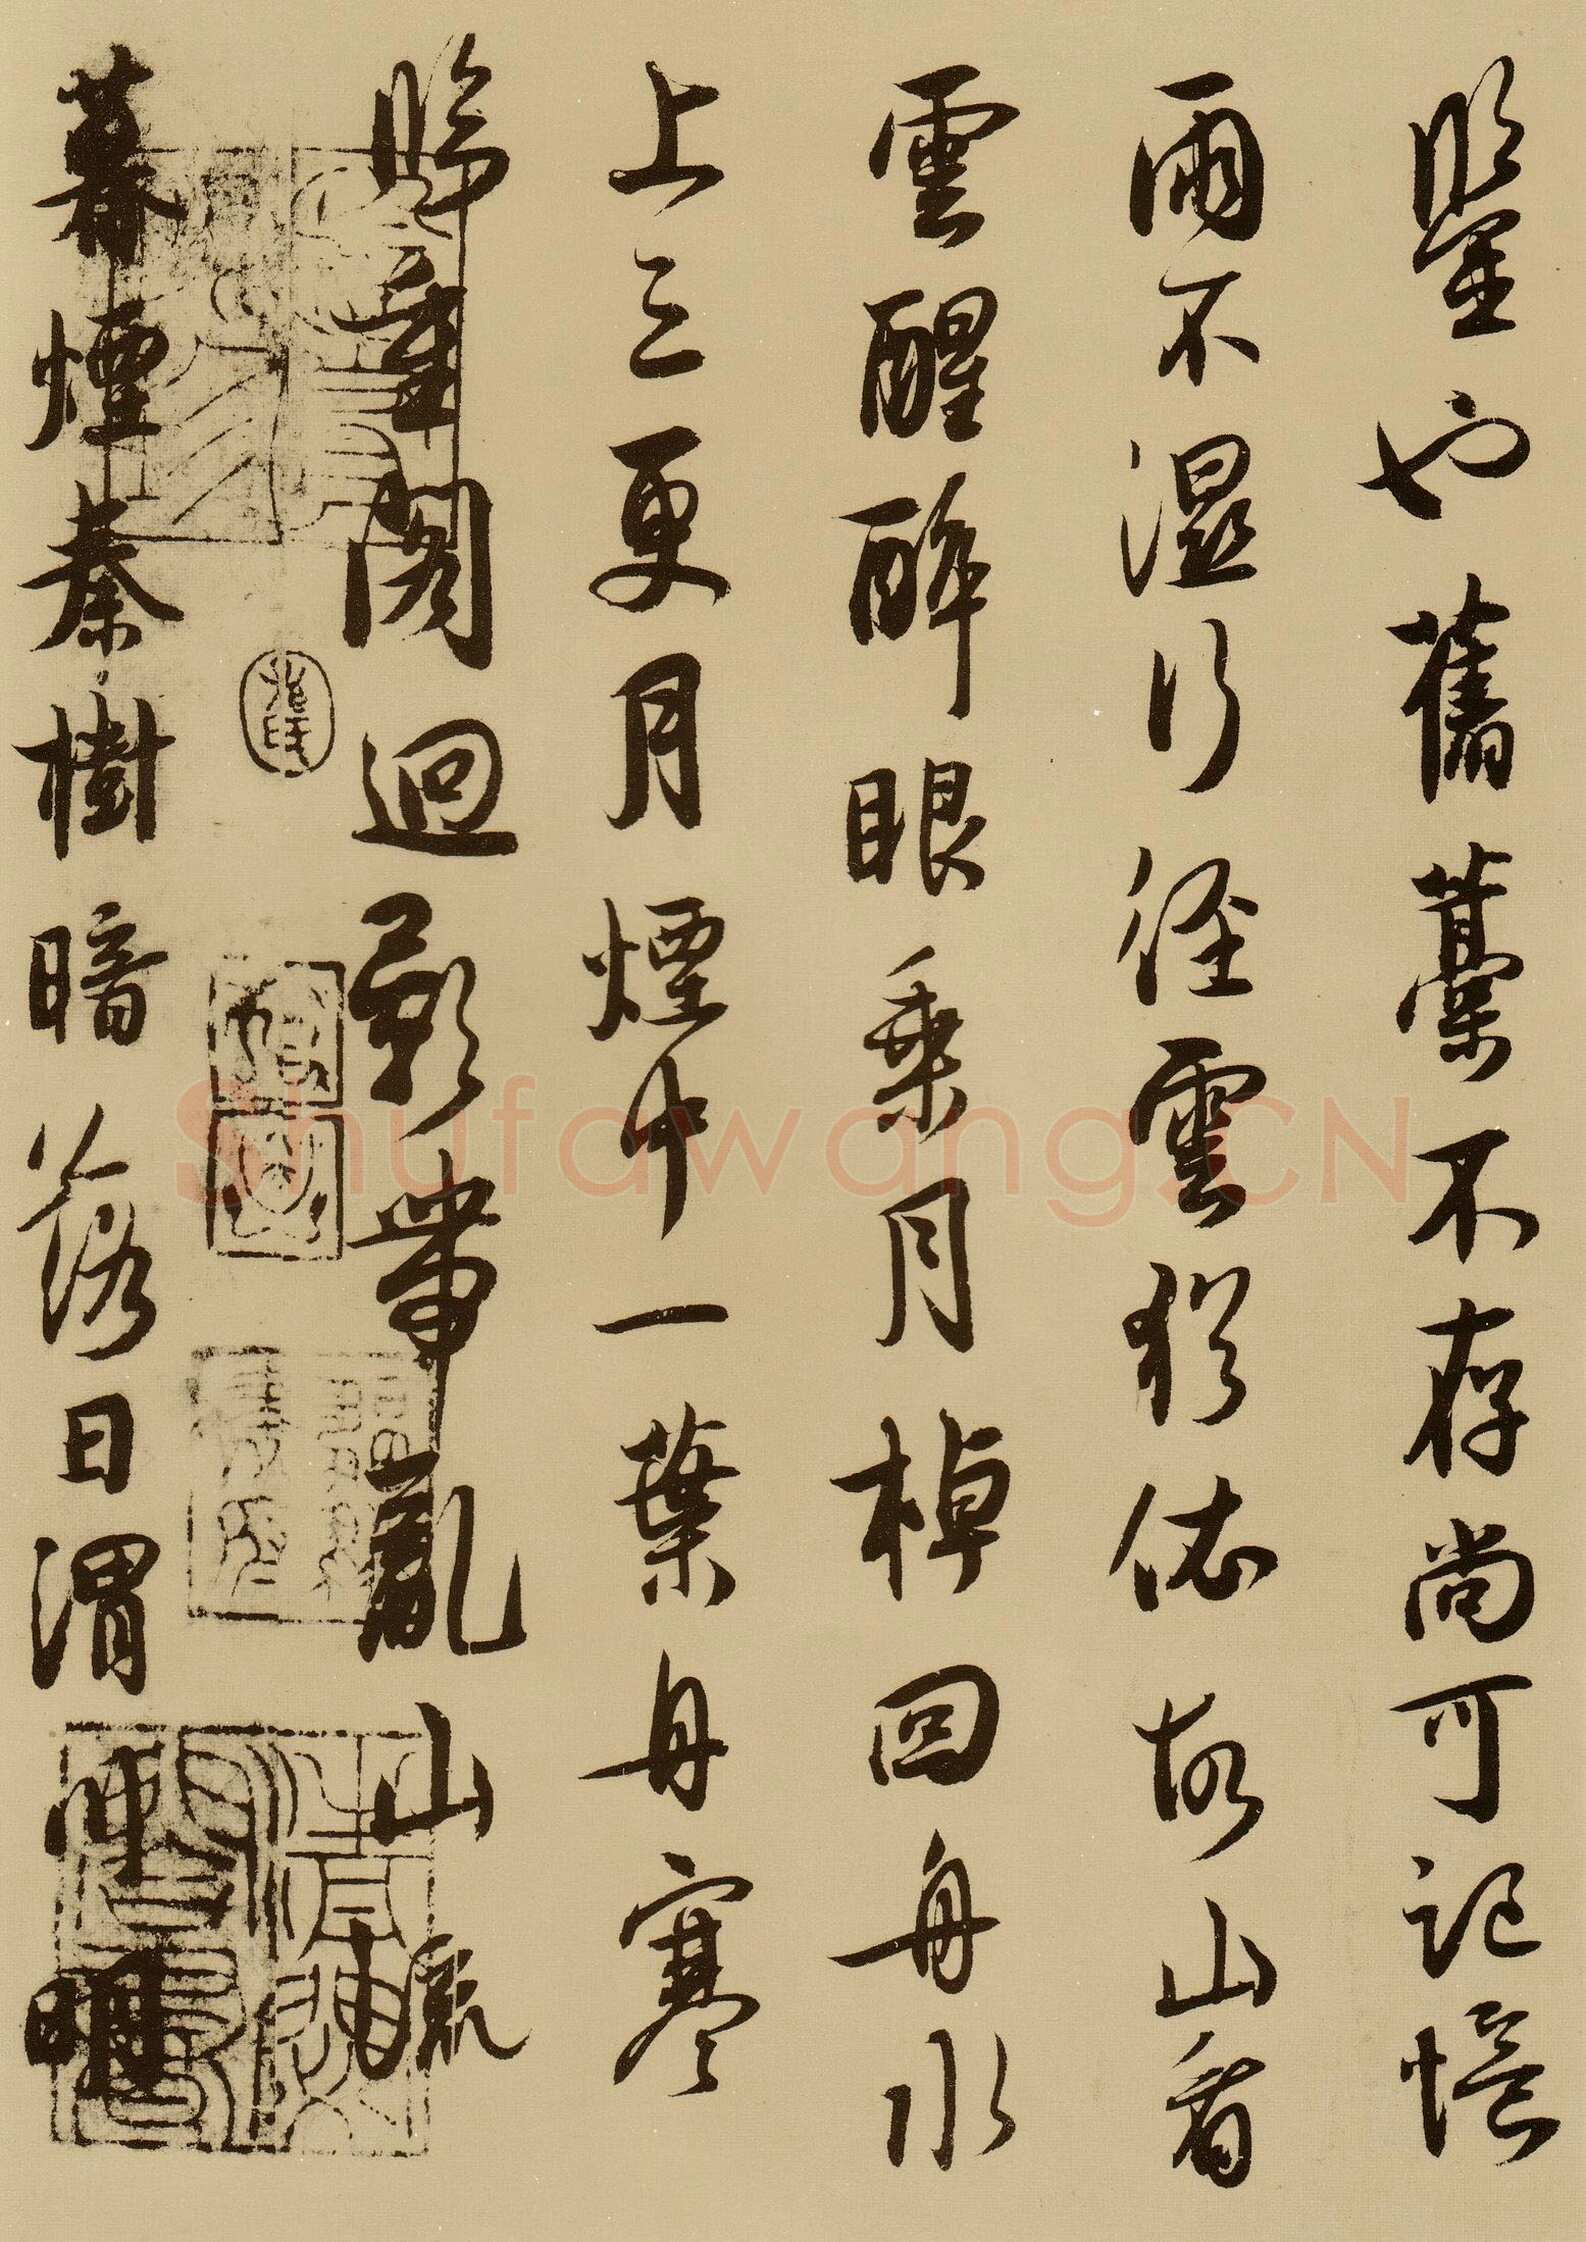 鑒也舊藁不存尚可記憶
雨不濕行徑雲猶依故山看
雲醒醉眼乘月棹回舟水
上三更月煙中一葉舟寒
歸重閣迥影帶亂山
暮煙秦樹暗落日渭川明
Shufawang.CN